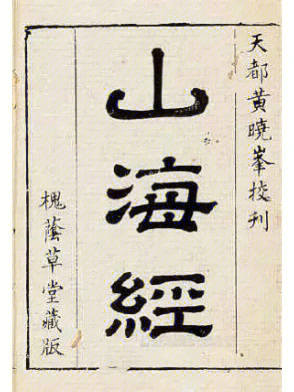 天都黃曉峯校刊
山海經
槐蔭草堂藏版